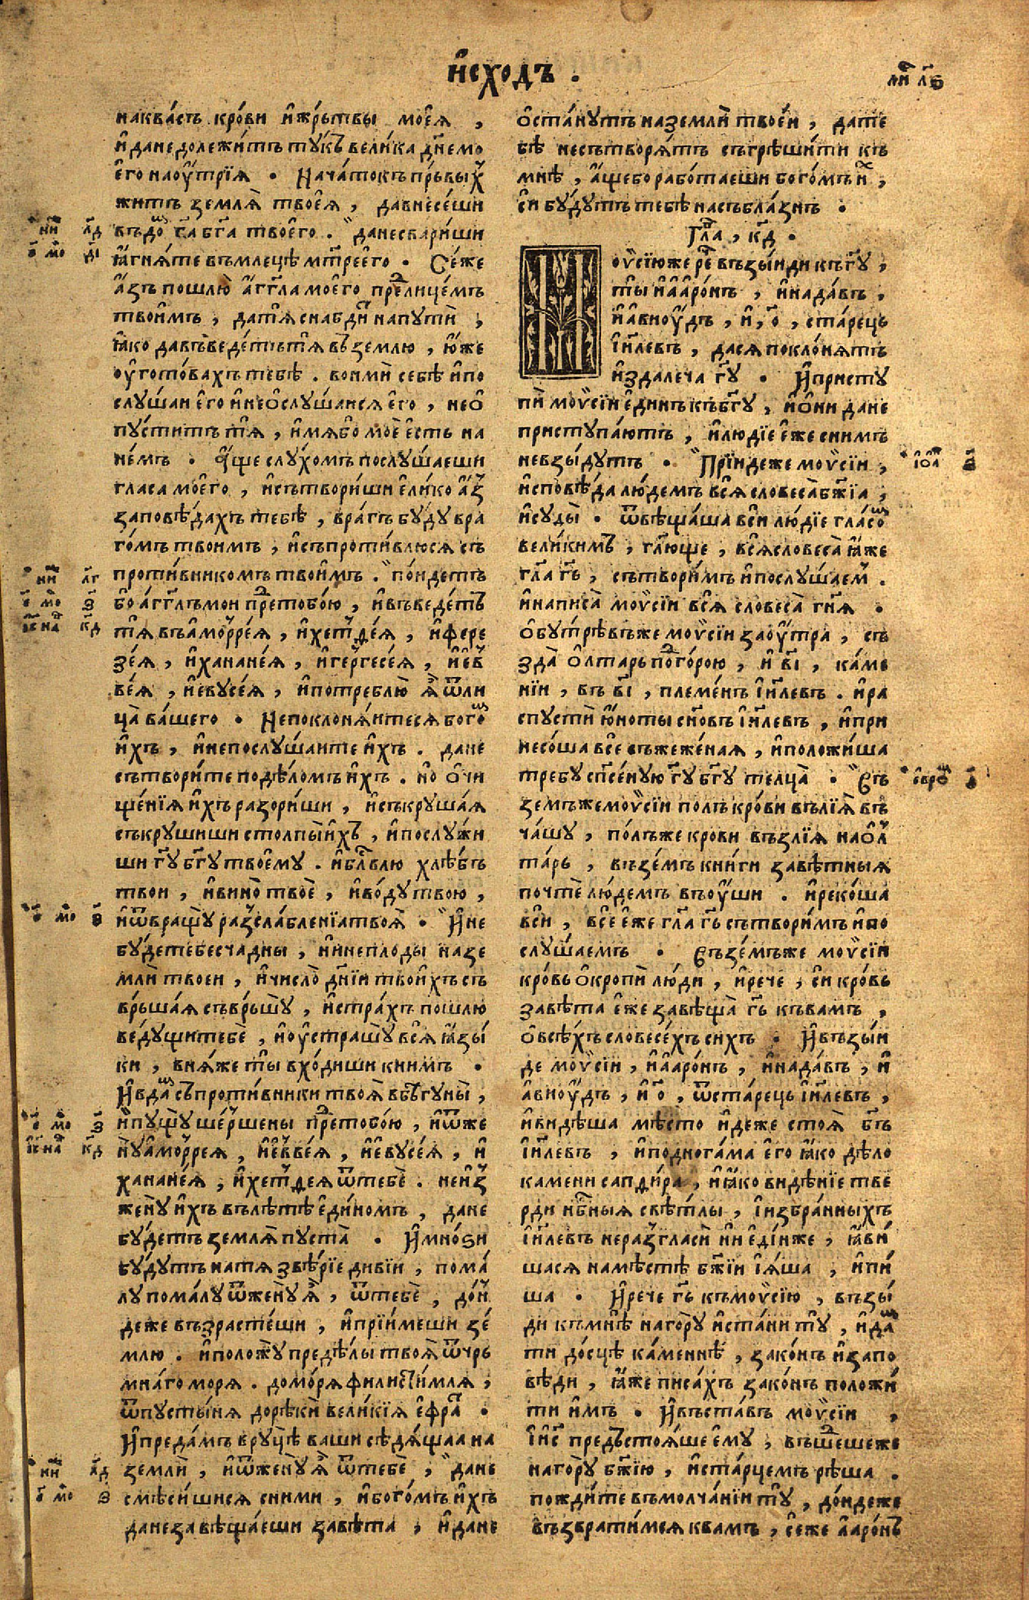 и҆схо́дъ .
на ква́сѣ кро́ви и҆ жрь́твы моеѧ̀ ,
и҆ да не долежи́тъ тꙋ́къ вели́ка дн҃е мо
е҆го̀ на оу҆́трїѧ . Нача́токъ пръ́вы
жи́тъ землѧ̀ твоеѧ̀ , да внесе́ши
въ до́ г҃а бг҃а твоего̀ . да не свари́ши
ꙗ҆гнѧ́те въ млецѣ̀ мт҃ре е҆го̀ . Се́ же
а҆́зъ пошлю̀ а҆́гг҃ла моего̀ пре лице́мъ
твои́мъ , да тѧ̀ снабди́ на пꙋтѝ ,
ꙗ҆́ко да въведе́тъ тѧ̀ въ зе́млю , ю҆́же
оу҆гото́вахъ тебѣ̀ . вонмѝ себѣ̀ и҆ по
слꙋ́шаи е҆го̀ и҆ не ѡ҆слꙋ́шаисѧ е҆го̀ , не ѡ҆
пꙋсти́тъ тѧ̀ , и҆́мѧ бо моѐ е҆́сть на
не́мъ . А҆́ще слꙋ́хомъ послꙋ́шаеши
гла́са моего̀ , и҆ сътвори́ши е҆ли́ко а҆́з
заповѣ́дахъ тебѣ̀ , вра́гъ бꙋ́дꙋ вра
го́мъ твои́мъ , и҆ съпроти́влюсѧ съ
проти́вникомъ твои́мъ . по́идетъ
бо а҆́гг҃лъ мои пре тобо́ю , и҆ въведе́тъ
тѧ̀ въ а҆морре́ѧ , и҆ хетте́ѧ , и҆ фере
зе́ѧ , и҆ ханане́ѧ , и҆ гергесе́ѧ , и҆ е҆в
ве́ѧ , и҆ евꙋсе́ѧ , и҆ потреблю̀ ѧ҆̀ ѿ ли
ца̀ ва́шего . Не поклонѧ́итесѧ бого́
и҆́хъ , и҆ не послꙋ́шаите и҆́хъ . да не
сътвори́те по дѣ́ломъ и҆́хъ . но ѡ҆чи
ще́нїѧ и҆́хъ разори́ши , и҆ съкрꙋша́ѧ
съкрꙋши́ши столпы̀ и҆́хъ , и҆ послꙋжи
ши г҃ꙋ бг҃ꙋ твоемꙋ̀ . и҆ бл҃влю̀ хлѣ́бъ
твои , и҆ вино̀ твоѐ , и҆ во́дꙋ твою̀ ,
и҆ ѿвращꙋ̀ разслабле́нїа твоѧ̀ . И҆ не
бꙋ́дете бесча́дны , ни непло́ды на зе
млѝ твоеи , и҆ число̀ дн҃їи твои́хъ съ
врьша́ѧ съврьшꙋ̀ , и҆ стра́хъ пошлю̀
ведꙋщи тебѐ , и҆ оу҆страшꙋ̀ всѧ̀ ꙗ҆зы
ки , в нѧ́же ты̀ вхо́диши к ни́мъ .
И҆ вда́ съпроти́вники твоѧ̀ въ бѣгꙋны̀ ,
и҆ пꙋщꙋ̀ ше́ршены пре тобо́ю , и҆ ѿже
нꙋ̀ а҆морре́ѧ , и҆ е҆вве́ѧ , и҆ евꙋсе́ѧ , и҆
ханане́ѧ , и҆ хетте́ѧ ѿ тебѐ . не и҆з
женꙋ̀ и҆́хъ въ лѣ́тѣ е҆ди́номъ , да не
бꙋ́детъ землѧ̀ пꙋста̀ . И҆ мно́ѕи
бꙋ́дꙋтъ на тѧ̀ звѣ́рїе ди́вїи , пома́
лꙋ пома́лꙋ ѿженꙋ̀ ѧ҆̀ , ѿ тебѐ , до́н
деже възрасте́ши , и҆ прїи́меши зе́
млю . и҆ положꙋ̀ предѣ́лы твоѧ̀ ѿ чръ
мна́го мо́рѧ . до мо́рѧ филисти́млѧ ,
ѿ пꙋсты́нѧ до рѣкѝ вели́кїѧ е҆фра .
И҆ преда́мъ в рꙋцѣ̀ ва́ши сѣдѧ́щаа на
землѝ , и҆ ѿженꙋ̀ ѧ҆̀ ѿ тебѐ , да не
смѣси́шисѧ с ни́ми , и҆ бого́мъ и҆́хъ
да не завѣща́еши завѣ́та , и҆ да не
ѡ҆ста́нꙋтъ на землѝ твое́и , да те
бѣ̀ не сътворѧ́тъ съгрѣши́ти къ
мнѣ̀ , а҆́ще бо рабо́таеши бого́мъ и҆́ ,
си бꙋ́дꙋтъ тебѣ̀ на съблазнъ .
Гла , к҃д .
оѷсїю же ре възы́иди къ г҃ꙋ ,
ты̀ и҆ а҆аро́нъ , и҆ нада́въ ,
и҆ а҆виоу́дъ , и҆ , о҃ , ста́рецъ
і҆и҃левъ , да сѧ покло́нѧтъ
и҆здале́ча г҃ꙋ . И҆ пристꙋ
пѝ моѷсі́и е҆ди́нъ къ бг҃ꙋ , и҆ о҆нѝ да не
пристꙋпа́ютъ , и҆ лю́дїе е҆́же с ни́мъ
не взы́дꙋтъ . Прїи́де же моѷсі́и ,
и҆ сповѣ́да лю́демъ всѧ̀ словеса̀ бж҃їа ,
и҆ сꙋды̀ . ѿвѣща́ша всѝ лю́дїе гла́со
вели́кимъ , гл҃юще , всѧ̀ словеса̀ ꙗ҆́же
гл҃а г҃ь , сътвори́мъ и҆ послꙋ́шаем .
и҆ написа̀ моѷсі́и всѧ̀ словеса̀ гн҃ѧ .
ѡ҆бꙋтрѣ́въ же моѷсі́и заоу҆́тра , съ
зда̀ ѻ҆лта́рь по горо́ю , и҆ в҃і , ка́ме
нїи , въ в҃і , племе́нъ і҆и҃левъ . и҆ ра
спꙋстѝ ю҆́ноты сн҃овъ і҆и҃левъ , и҆ при
несо́ша все съжеже́наѧ , и҆ положи́ша
тре́бꙋ сп҃се́нꙋю г҃ꙋ бг҃ꙋ телца̀ . Въ
зе́мъ же моѷсі́и по́лъ кро́ви въ лїѧ̀ въ
ча́шꙋ , по́лъ же кро́ви възлїѧ̀ на ѻ҆л
та́рь , възе́мъ кни́ги завѣ́тныѧ
почтѐ лю́демъ въ оу҆́ши . и҆ реко́ша
всѝ , все е҆́же гл҃а г҃ь сътвори́мъ и҆ по
слꙋ́шаемъ . Възе́мъ же моѷсі́и
кро́вь ѡ҆кропѝ лю́ди , и҆ рече , сѝ кро́вь
завѣ́та е҆́же завѣща̀ г҃ь къ ва́мъ ,
ѡ҆ всѣ́хъ словесе́хъ си́хъ . И҆ възы́и
де моѷсі́и , и҆ а҆аро́нъ , и҆ нада́въ , и҆
а҆виоу́дъ , и҆ о҃ , ѿ ста́рецъ і҆и҃левъ ,
и҆ ви́дѣша мѣ́сто и҆де́же стоѧ̀ бг҃ъ
і҆и҃левъ , и҆ под нога́ма е҆го̀ ꙗ҆́ко дѣ́ло
ка́мени сапди́ра , и҆ ꙗ҆́ко видѣ́нїе тве
рди нб҃ныѧ свѣ́тлы , і҆збра́нныхъ
і҆и҃левъ не разгласѝ ни е҆ди́нже , ꙗ҆ви
шасѧ на мѣ́стѣ бж҃їи і҆ ѧ҆́ша , и҆ пи
ша . И҆ рече г҃ь къ моѷсі́ю , възы́
ди къ мнѣ̀ на го́рꙋ и҆ ста́ни тꙋ̀ , и҆ да
ти до́сцѣ ка́меннѣ , зако́нъ и҆ за́по
вѣди , ꙗ҆́же писа́хъ зако́нъ положи́
ти и҆́мъ . И҆ въста́въ моѷсі́и ,
і҆и҃с предъстоѧ́ше е҆мꙋ̀ , въше́ше же
на го́рꙋ бж҃їю , и҆ ста́рцемъ рѣ́ша .
пожди́те въ молча́нїи тꙋ̀ , до́ндеже
възврати́мсѧ к ва́мъ , се́ же а҆аро́нъ